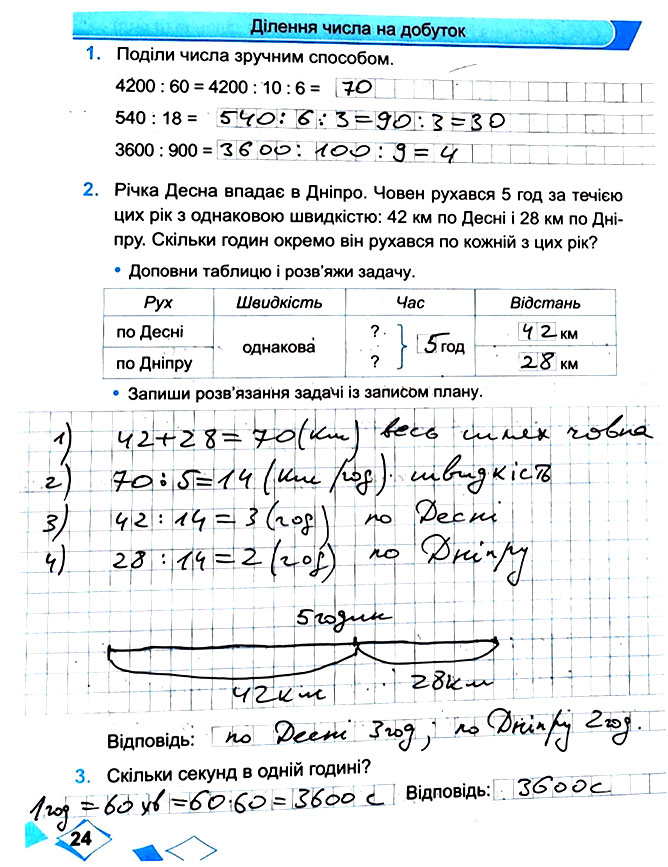 Ділення числа на добуток
1. Поділи числа зручним способом.
4200 : 60 = 4200 : 10 : 6 = 70
540 : 18 = 540 : 6 : 3 = 90 : 3 = 30
3600 : 900 = 3600 : 100 : 9 = 4
2. Річка Десна впадає в Дніпро. Човен рухався 5 год за течією
цих рік з однаковою швидкістю: 42 км по Десні і 28 км по Дні-
пру. Скільки годин окремо він рухався по кожній з цих рік?
• Доповни таблицю і розв'яжи задачу.
Рух Швидкість Час Відстань
по Десні однакова ? 5 год 42 км
по Дніпру ? 28 км
• Запиши розв'язання задачі із записом плану.
1) 42+28=70(км) весь шлях човна
2) 70:5=14 (км/год) швидкість
3) 42:14=3(год) по Десні
4) 28:14=2(год) по Дніпру
5 годин
42км 28км
Відповідь: по Десні 3год; по Дніпру 2год.
3. Скільки секунд в одній годині?
1год = 60 хв = 60·60 = 3600 с Відповідь: 3600с
24